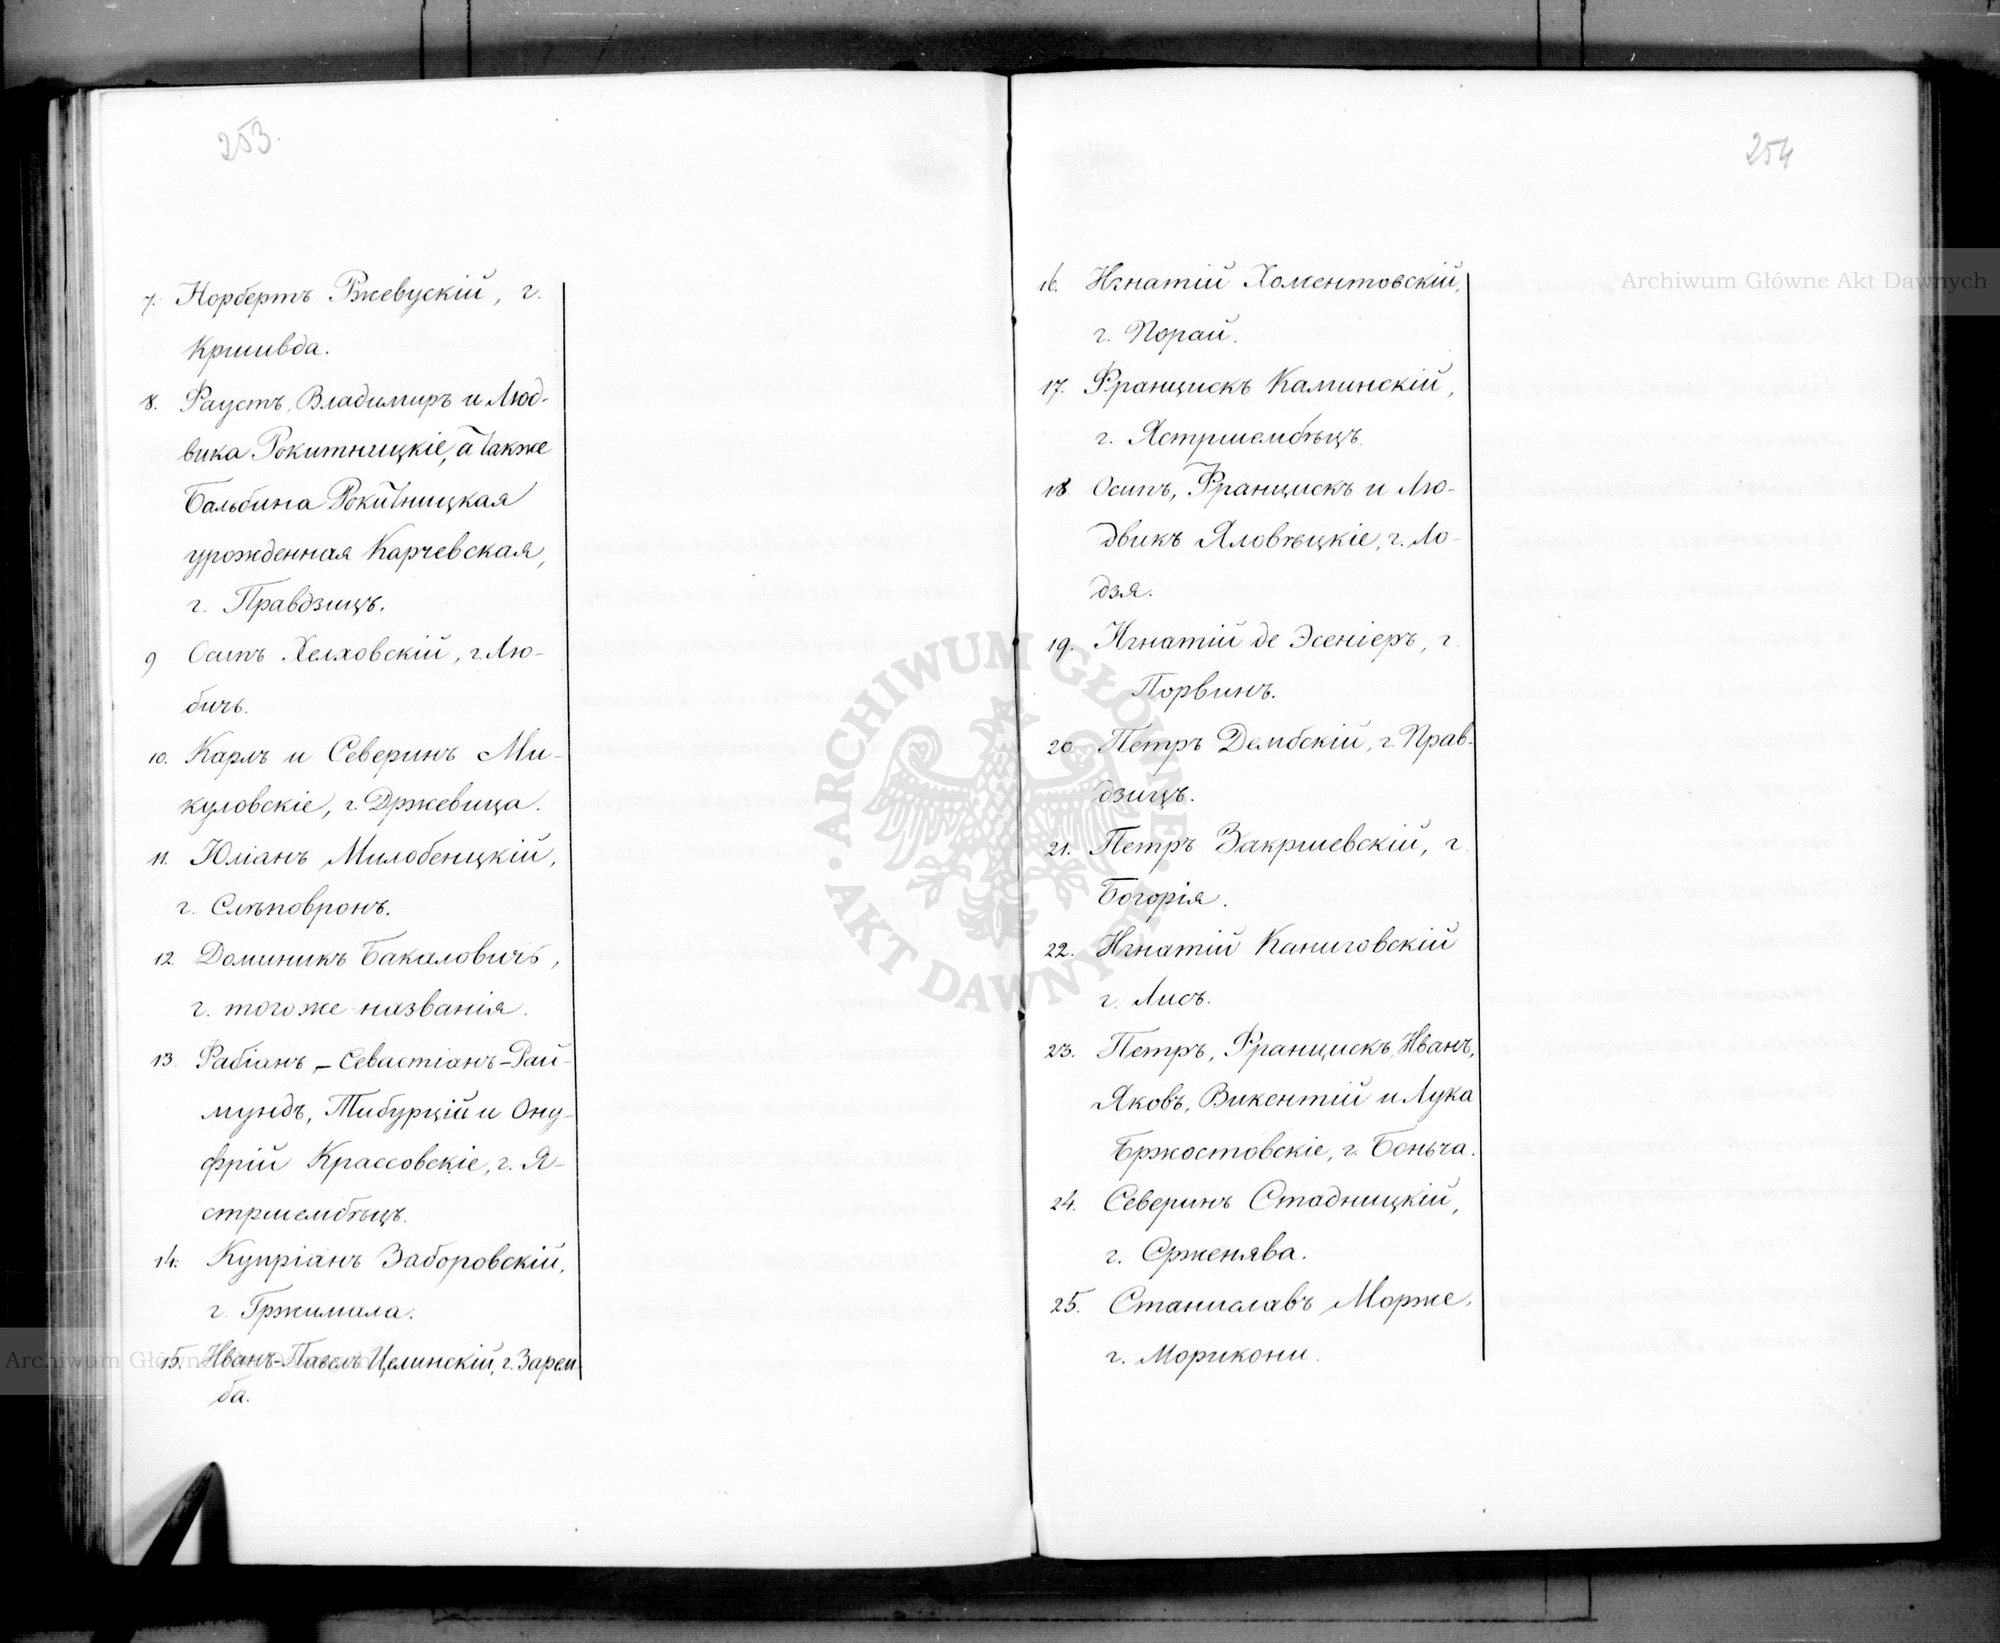 253.
7. Норбертъ Ржевускій, г.
Кршивда.
8. Фаустъ, Владимиръ и Люд-
вика Рокитницкіе, а также
Бальбина Рокитницкая
урожденная Карчевская,
г. Правдзицъ.
9 Осипъ Хелховскій, г. Лю-
бичъ.
10. Карлъ и Северинъ Ми-
куловскіе, г. Држевица.
11. Юліанъ Милобенцкій,
г. Слѣповронъ.
12. Доминикъ Бакаловичъ,
г. того же названія.
13. Фабіанъ-Севастіанъ-Рай-
мундъ, Тибурцій и Ону-
фрій Крассовскіе, г. Я-
стршембѣцъ.
14. Купріанъ Заборовскій,
г. Гржимала.
15. Иванъ-Павелъ Целинскій, г. Зарем-
ба.
254
16. Игнатій Хоментовскій,
г. Порай.
17. Францискъ Каминскій,
г. Ястршембѣцъ.
18 Осипъ, Францискъ и Лю-
двикъ Яловѣцкіе, г. Ло-
дзя.
19. Игнатій де Эсеніеръ, г.
Порвинъ.
20. Петръ Дембскій, г. Прав-
дзицъ.
21. Петръ Закршевскій, г.
Богорія.
22. Игнатій Каниговскій
г. Лисъ.
23. Петръ, Францискъ, Иванъ,
Яковъ, Викентій и Лука
Бржостовскіе, г. Боньча.
24. Северинъ Стадницкій,
г. Срженява.
25. Станиславъ Морже,
г. Морикони.
Archiwum Główne Akt Dawnych
ARCHIWUM GŁÓWNE
AKT DAWNYCH
Archiwum Główne